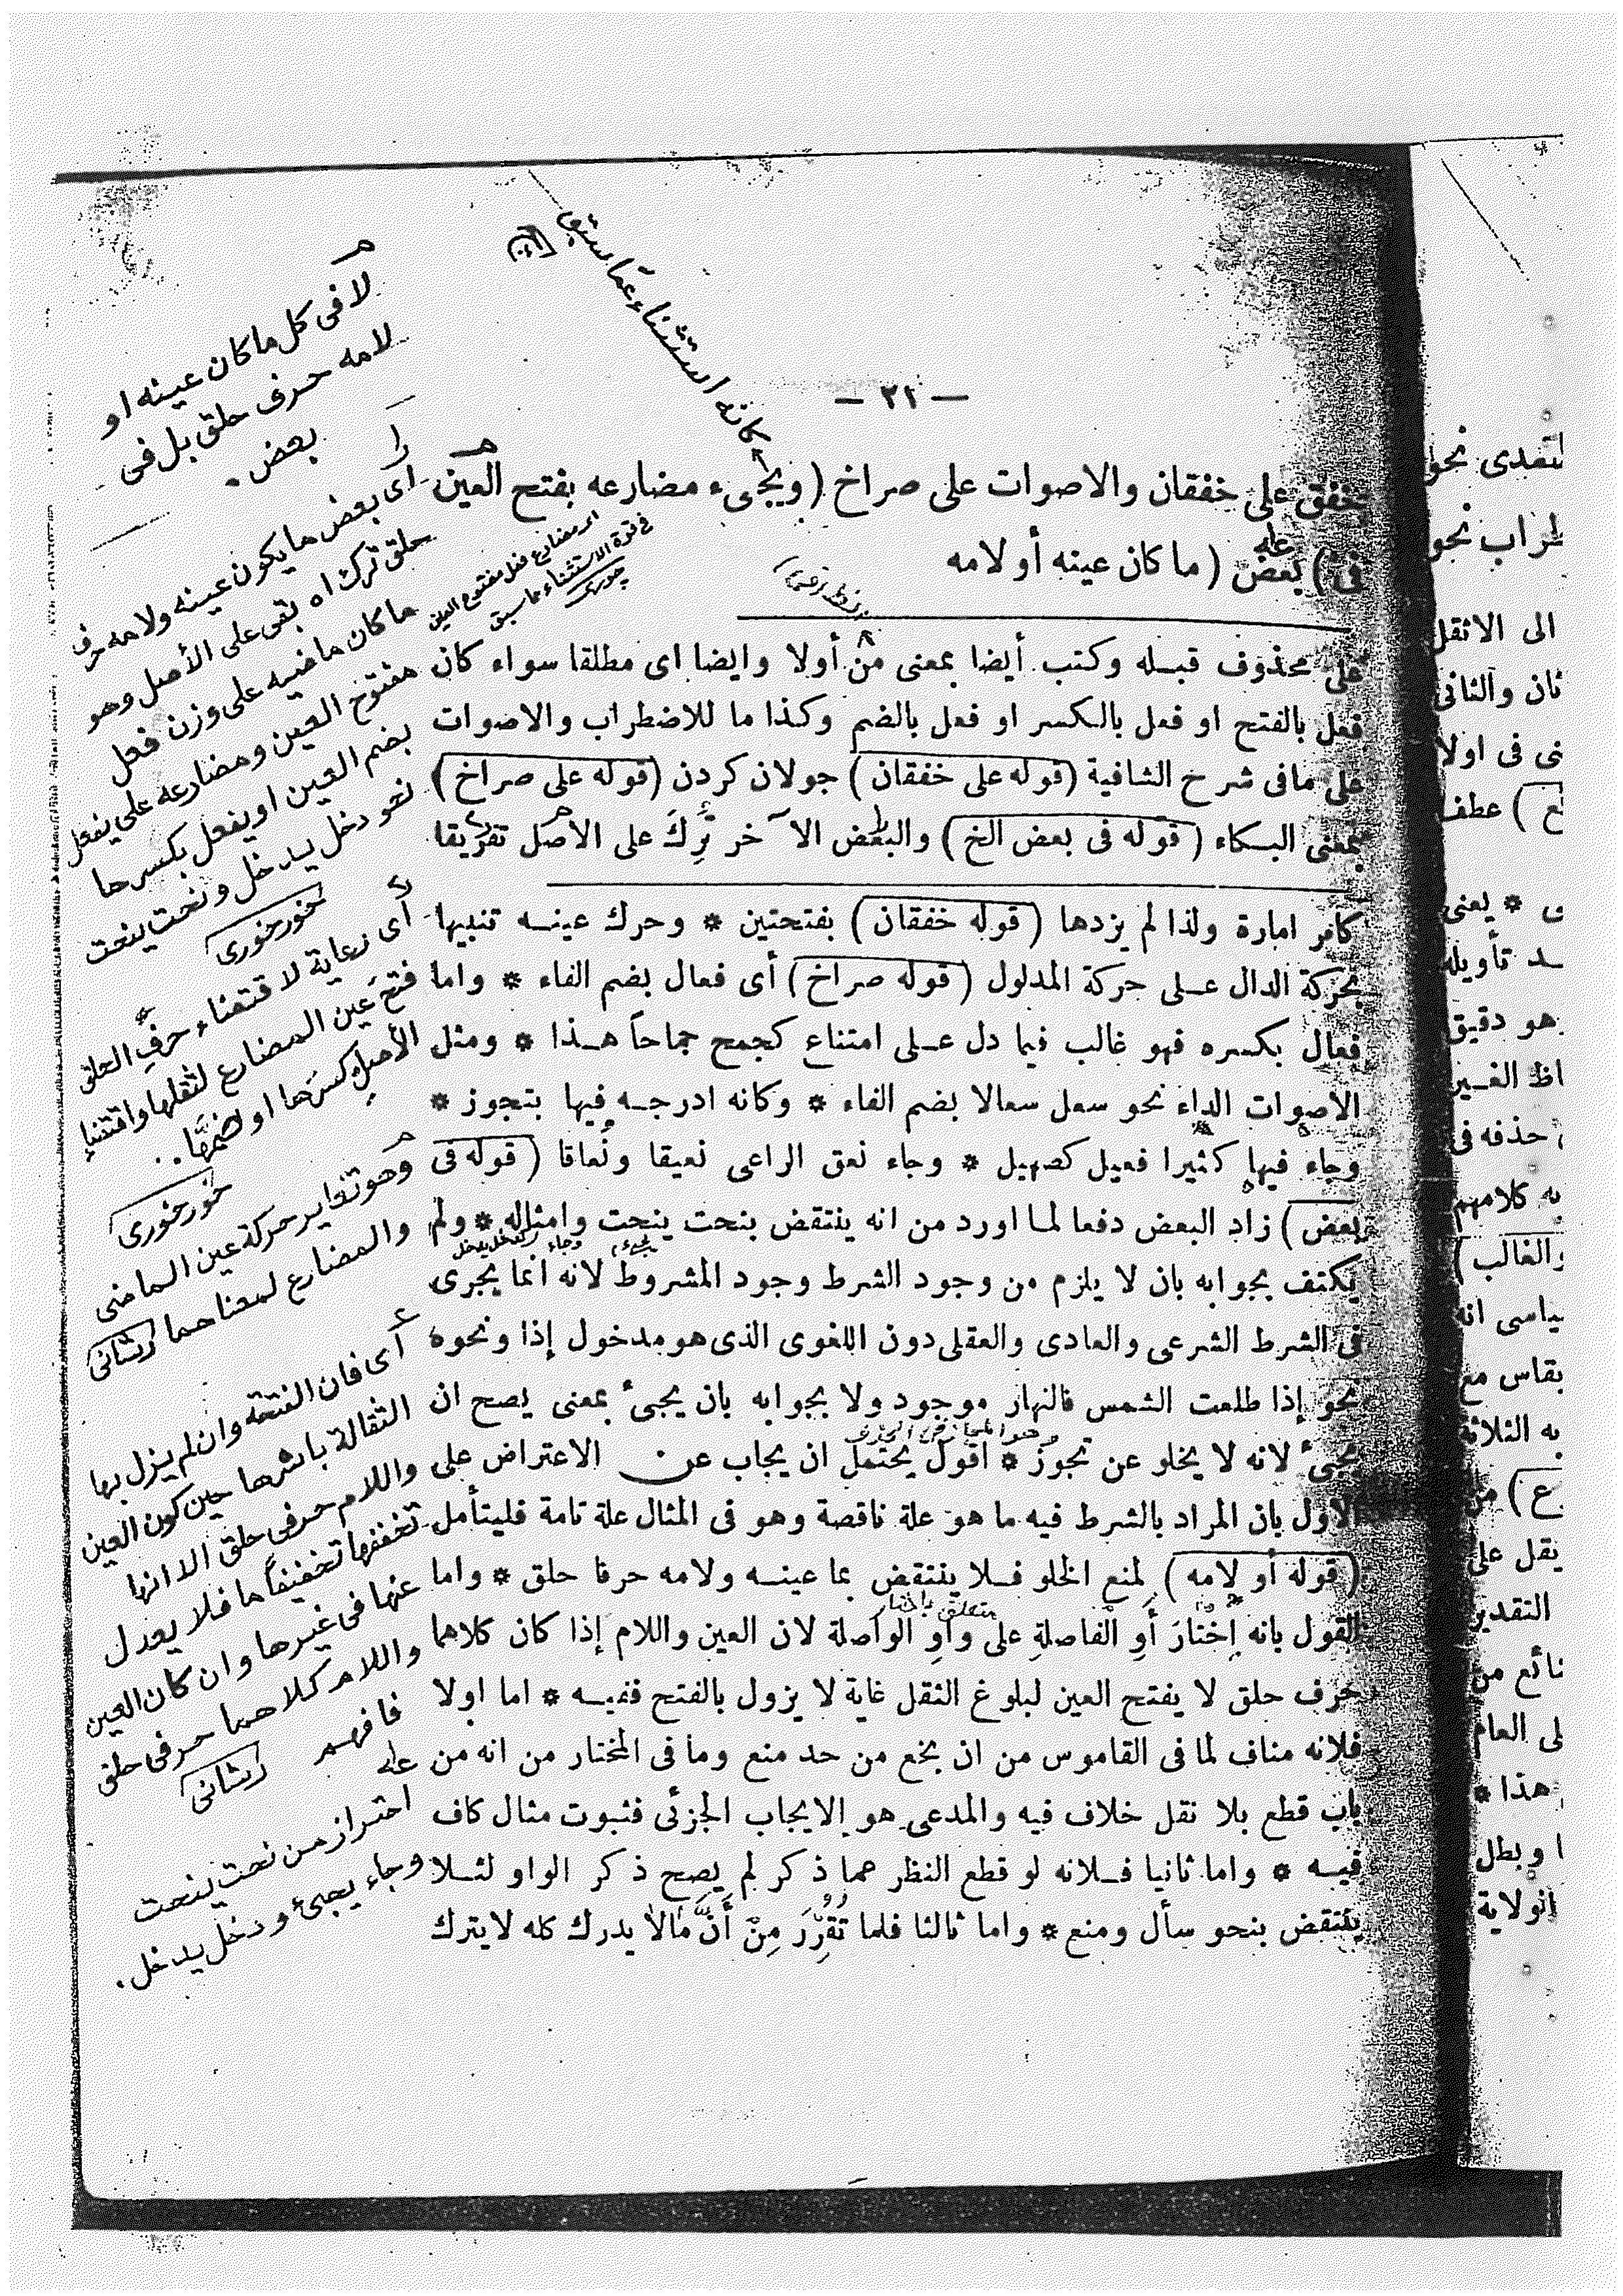 — ٣٢ —
يخفق على خفقان والاصوات على صراخ (ويجىء مضارعه بفتح العين
فى) بعض (ما كان عينه أو لامه
على محذوف قبله وكتب أيضا بمعنى من أولا وايضا اى مطلقا سواء كان
فعل بالفتح او فعل بالكسر او فعل بالضم وكذا ما للاضطراب والاصوات
على مافى شرح الشافية (قوله على خفقان) جولان كردن (قوله على صراخ)
بمعنى البكاء (قوله فى بعض الخ) والبعض الآخر تُرِكَ على الاصل تفريقا
كافر امارة ولذا لم يزدها (قوله خفقان) بفتحتين * وحرك عينه تنبيها
بحركة الدال على حركة المدلول (قوله صراخ) أى فعال بضم الفاء * واما
فعال بكسره فهو غالب فيما دل على امتناع كجمح جماحاً هذا * ومثل
الاصوات الداء نحو سعل سعالا بضم الفاء * وكانه ادرجه فيها بتجوز *
وجاء فيها كثيرا فعيل كصهيل * وجاء نعق الراعى نعيقا ونُعاقا (قوله فى
بعض) زاد البعض دفعا لما اورد من انه ينتقض بنحت ينحت وامثاله * ولم
يكتف بجوابه بان لا يلزم من وجود الشرط وجود المشروط لانه انما يجرى
فى الشرط الشرعى والعادى والعقلى دون اللغوى الذى هو مدخول إذا ونحوه
نحو إذا طلعت الشمس فالنهار موجود ولا بجوابه بان يجىٔ بمعنى يصح ان
يجىٔ لانه لا يخلو عن تجوز * اقول يحتمل ان يجاب عن الاعتراض على
الاول بان المراد بالشرط فيه ما هو علة ناقصة وهو فى المثال علة تامة فليتأمل
(قوله أو لامه) لمنع الخلو فلا ينتقض بما عينه ولامه حرفا حلق * واما
القول بانه إخْتارَ أَوِ الفاصلةِ على واوِ الواصلة لان العين واللام إذا كان كلاهما
حرف حلق لا يفتح العين لبلوغ الثقل غاية لا يزول بالفتح ففيه * اما اولا
فلانه مناف لما فى القاموس من ان بخع من حد منع وما فى المختار من انه من
باب قطع بلا نقل خلاف فيه والمدعى هو الايجاب الجزئى فثبوت مثال كاف
فيه * واما ثانيا فلانه لو قطع النظر عما ذكر لم يصح ذكر الواو لئلا
ينتقض بنحو سأل ومنع * واما ثالثا فلما تُقُرِّرَ مِنْ أَنَّ مَالا يدرك كله لا يترك
كانه استثناء عمّا سبق
لا فى كل ما كان عينه او
لامه حرف حلق بل فى
بعض .
اى بعض ما يكون عينه ولامه حرف
حلق ترك اه بقى على الأصل وهو
ما كان ماضيه على وزن فعل
مفتوح العين ومضارعه على يفعل
بضم العين او يفعل بكسرها
نحو دخل يدخل ونحت ينحت
خورخورى
أى رعاية لاقتضاء حرف الحلق
فتحَ عين المضارع لثقلها واقتضاء
الأصلِ كسرَها او ضمَّها ..
خورخورى
وهو تغاير حركة عين الماضى
والمضارع لمعناهما
أى فان الفتحة وان لم يزل بها
الثقالة باشرها حين كون العين
واللام حرفى حلق الا انها
تخففها تخفيفاً ما فلا يعدل
عنها فى غيرها وان كان العين
واللام كلاهما حرفى حلق
فافهم
احتراز من نحت ينحت
وجاء يجىٔ ودخل يدخل .
فى قوة الاستثناء مما سبق
وجاء يجىء
متعلق باختار
لتعدى نحو
الى الاثقل
ثان والثانى
نى فى اولا
ع) عطف
* يعنى
هو دقيق
حذفه فى
به كلامهم
والغالب)
ياسى انه
يقاس مع
به الثلاثة
يقل على
التقدير
هذا *
ا وبطل